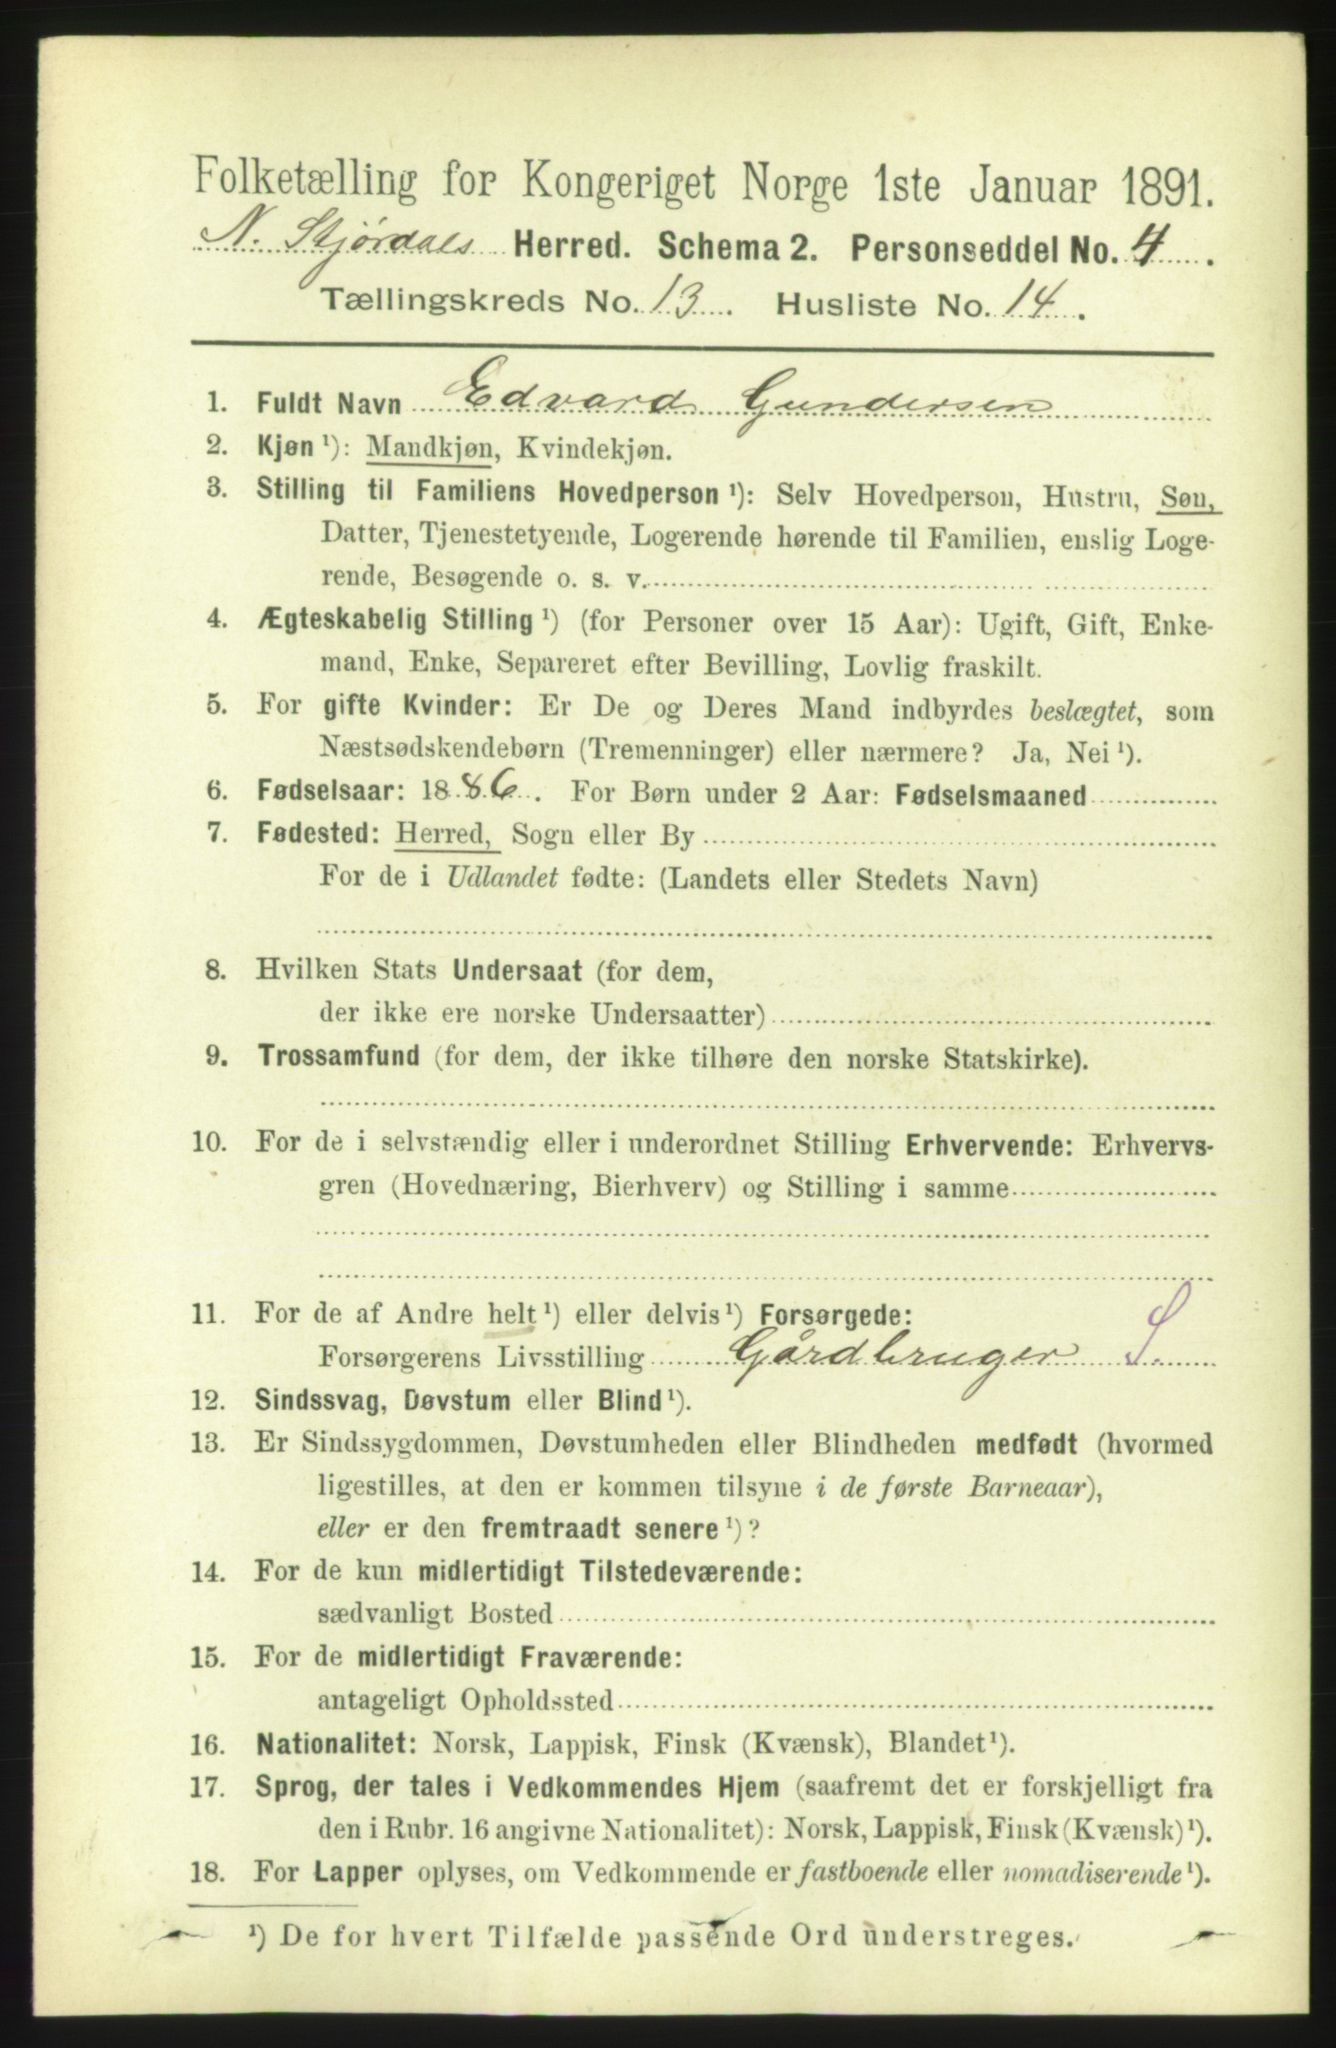 Folketælling for Kongeriget Norge 1ste Januar 1891.
N. Stjørdals Herred. Schema 2. Personseddel No. 4.
Tællingskreds No. 13. Husliste No. 14.
1. Fuldt Navn Edvard Gundersen
2. Kjøn ¹): Mandkjøn, Kvindekjøn.
3. Stilling til Familiens Hovedperson ¹): Selv Hovedperson, Hustru, Søn,
Datter, Tjenestetyende, Logerende hørende til Familien, enslig Loge-
rende, Besøgende o. s. v.
4. Ægteskabelig Stilling ¹) (for Personer over 15 Aar): Ugift, Gift, Enke-
mand, Enke, Separeret efter Bevilling, Lovlig fraskilt.
5. For gifte Kvinder: Er De og Deres Mand indbyrdes beslægtet, som
Næstsødskendebørn (Tremenninger) eller nærmere? Ja, Nei ¹).
6. Fødselsaar: 1886. For Børn under 2 Aar: Fødselsmaaned
7. Fødested: Herred, Sogn eller By
For de i Udlandet fødte: (Landets eller Stedets Navn)
8. Hvilken Stats Undersaat (for dem,
der ikke ere norske Undersaatter)
9. Trossamfund (for dem, der ikke tilhøre den norske Statskirke).
10. For de i selvstændig eller i underordnet Stilling Erhvervende: Erhvervs-
gren (Hovednæring, Bierhverv) og Stilling i samme
11. For de af Andre helt ¹) eller delvis ¹) Forsørgede:
Forsørgerens Livsstilling Gårdbruger S.
12. Sindssvag, Døvstum eller Blind ¹).
13. Er Sindssygdommen, Døvstumheden eller Blindheden medfødt (hvormed
ligestilles, at den er kommen tilsyne i de første Barneaar),
eller er den fremtraadt senere ¹)?
14. For de kun midlertidigt Tilstedeværende:
sædvanligt Bosted
15. For de midlertidigt Fraværende:
antageligt Opholdssted
16. Nationalitet: Norsk, Lappisk, Finsk (Kvænsk), Blandet ¹).
17. Sprog, der tales i Vedkommendes Hjem (saafremt det er forskjelligt fra
den i Rubr. 16 angivne Nationalitet): Norsk, Lappisk, Finsk (Kvænsk) ¹).
18. For Lapper oplyses, om Vedkommende er fastboende eller nomadiserende ¹).
¹) De for hvert Tilfælde passende Ord understreges.